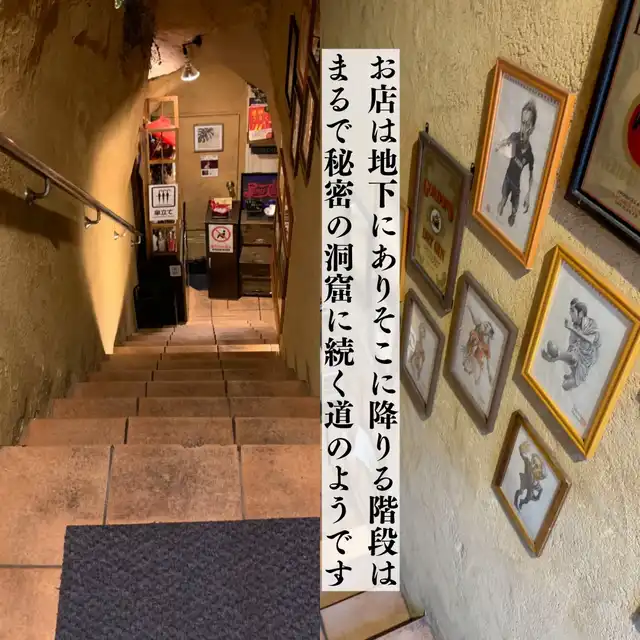 お店は地下にありそこに降りる階段は
まるで秘密の洞窟に続く道のようです
傘立て